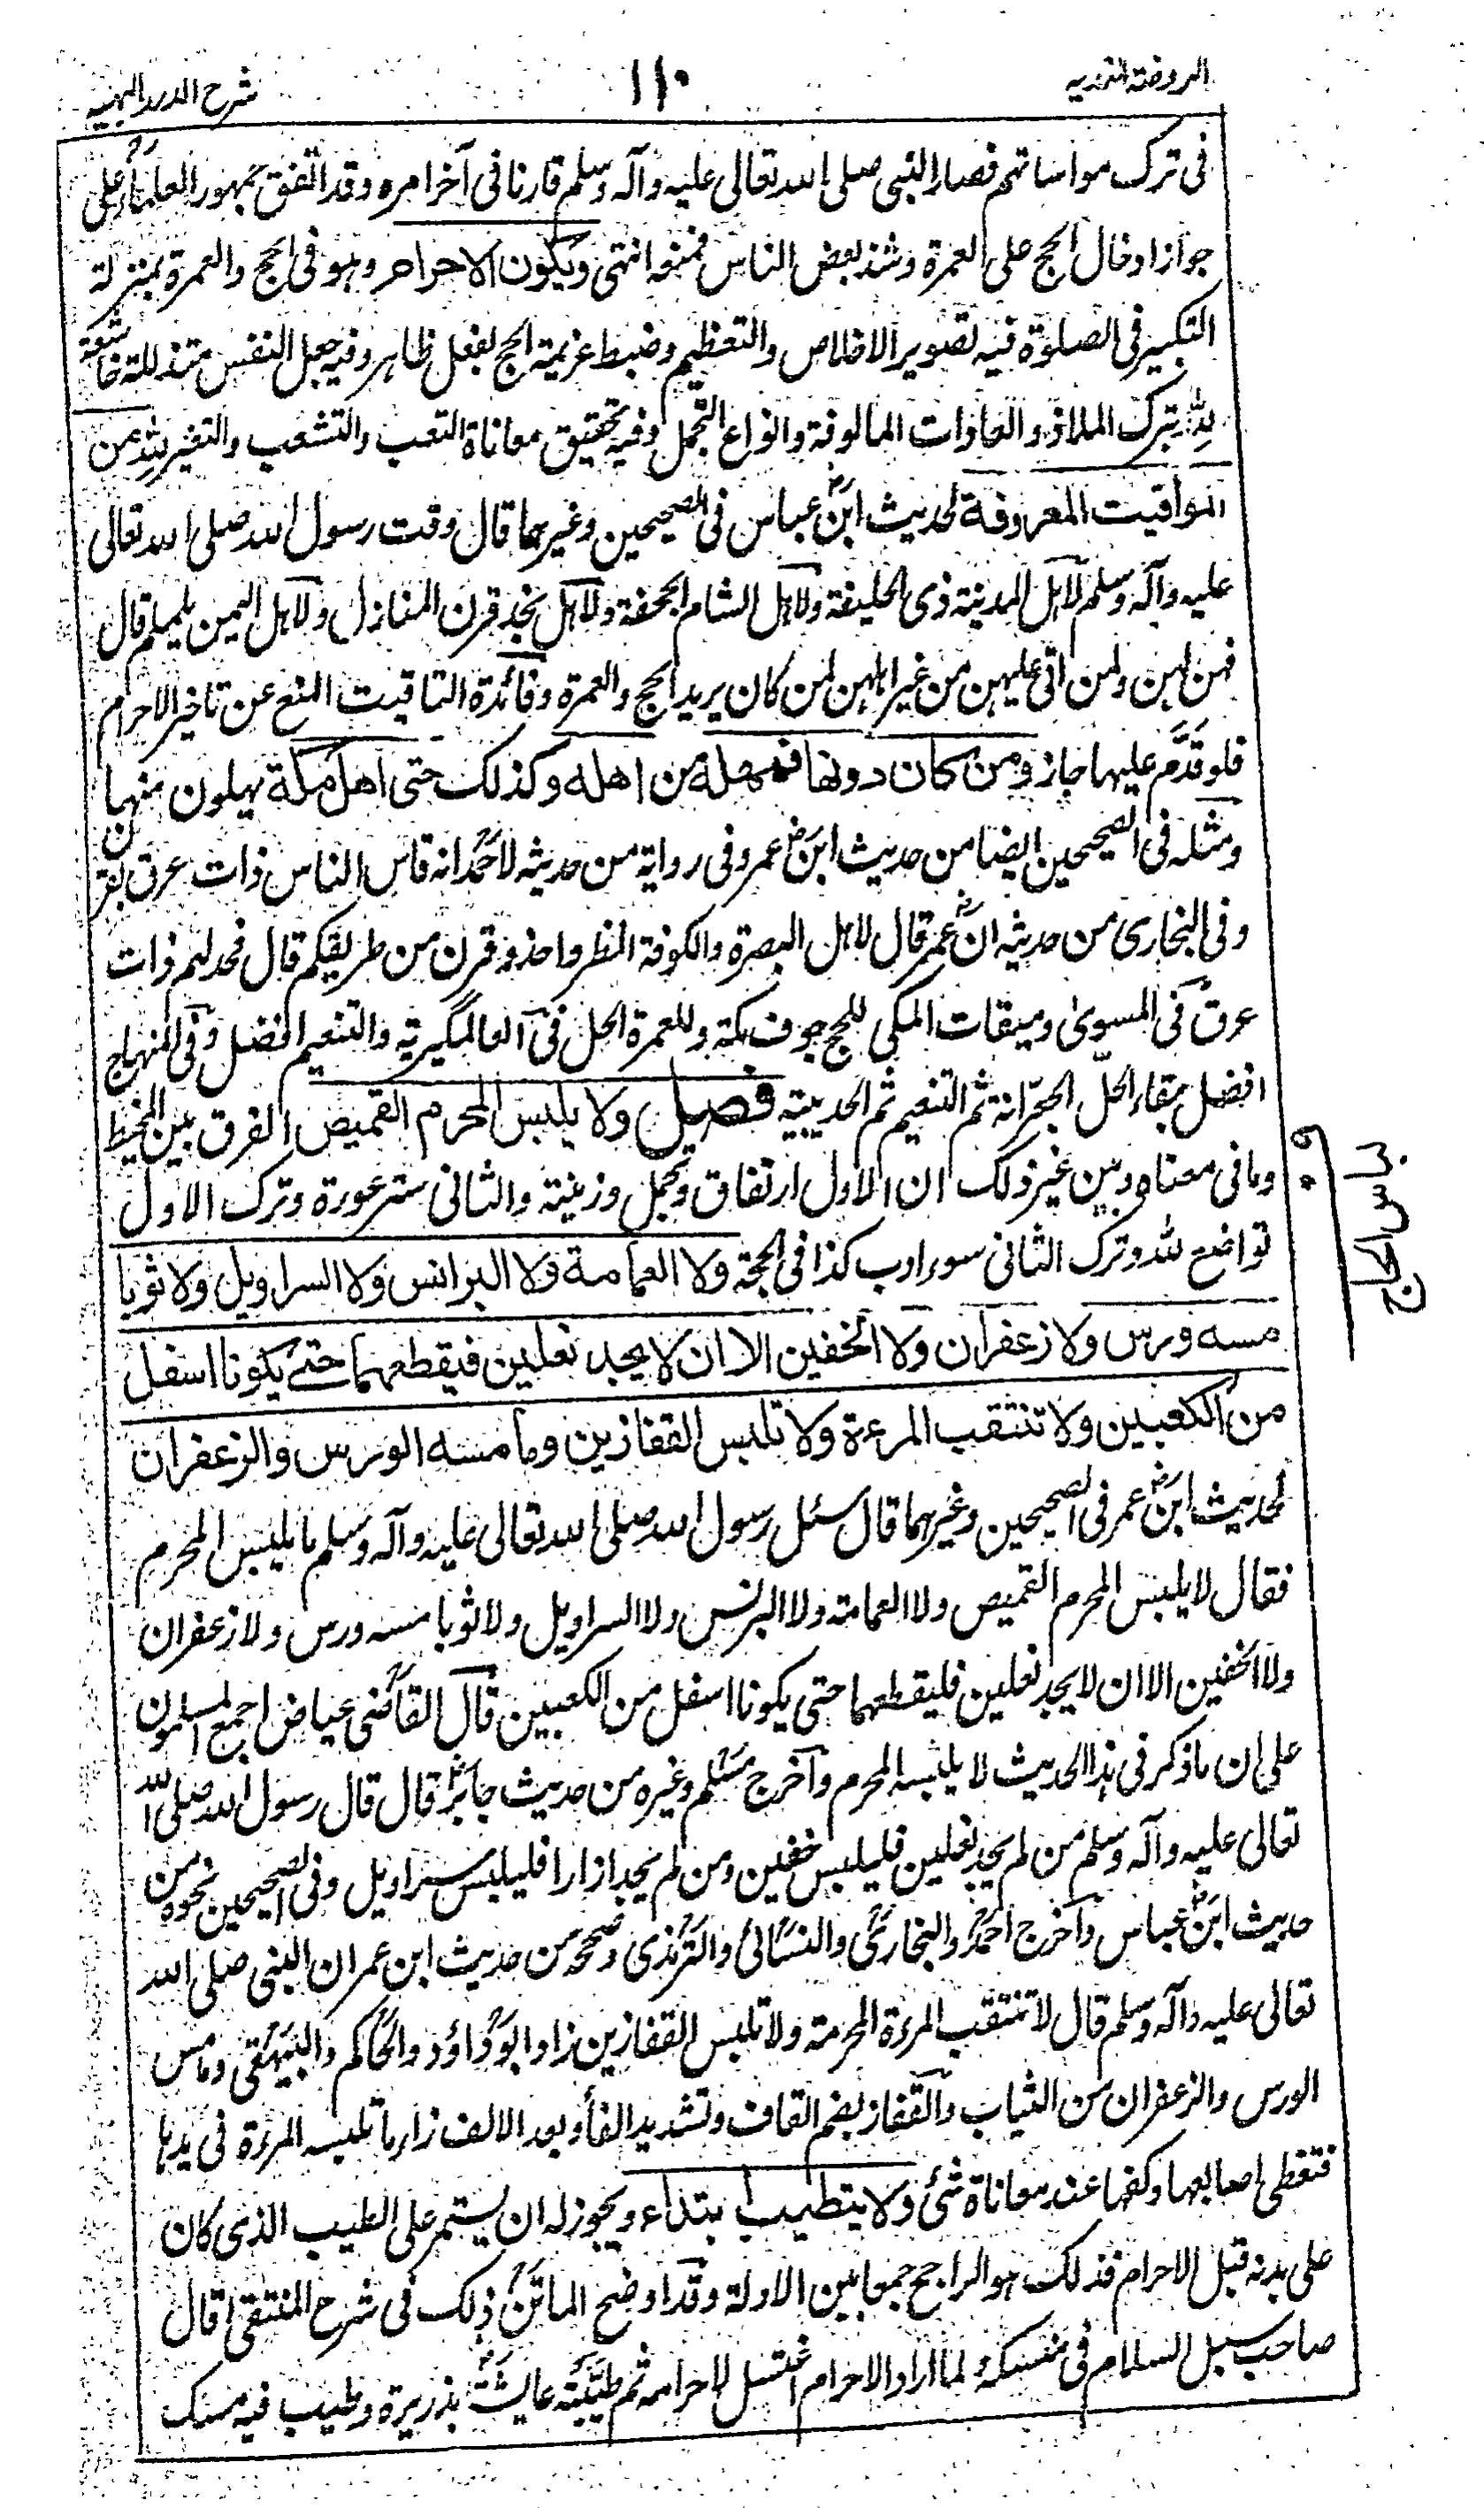 الروضة الندية
١١٠
شرح الدرر البهية
فى ترك مواساتهم فصار النبى صلى الله تعالى عليه وآله وسلم قارنا فى آخر امره وقد اتفق جمهور العلماء على
جواز ادخال الحج على العمرة وشذ بعض الناس فمنعه انتهى ويكون الاحرام وهو فى الحج والعمرة بمنزلة
التكبير فى الصلوة فيه تصوير الاخلاص والتعظيم وضبط عزيمة الحج بفعل ظاهر وفيه جعل النفس متذللة خاشعة
لله بترك الملاذ والعادات المالوفة وانواع التجمل وفيه تحقيق معاناة التعب والتشعب والتغبر لله من
المواقيت المعروفة لحديث ابن عباس فى الصحيحين وغيرهما قال وقت رسول الله صلى الله تعالى
عليه وآله وسلم لاهل المدينة ذى الحليفة ولاهل الشام الجحفة ولاهل نجد قرن المنازل ولاهل اليمن يلملم قال
فهن لهن ولمن اتى عليهن من غير اهلهن لمن كان يريد الحج والعمرة وفائدة التاقيت المنع عن تاخير الاحرام
فلو قدّم عليها جاز ومن كان دونها فمهله من اهله وكذلك حتى اهل مكة يهلون منها
ومثله فى الصحيحين ايضا من حديث ابن عمر وفى رواية من حديثه لاحمد انه قاس الناس ذات عرق بقرن
وفى البخارى من حديثه ان عمر قال لاهل البصرة والكوفة انظروا حذو قرن من طريقكم قال فحد لهم ذات
عرق فى المسوى وميقات المكى للحج جوف مكة وللعمرة الحل فى العالمگيرية والتنعيم افضل وفى المنهاج
افضل بقاء الحل الجعرّانة ثم التنعيم ثم الحديبية فصل ولا يلبس المحرم القميص الفرق بين المخيط
وما فى معناه وبين غير ذلك ان الاول ارتفاق وتجمل وزينة والثانى ستر عورة وترك الاول
تواضع لله وترك الثانى سوء ادب كذا فى الحجة ولا العمامة ولا البرانس ولا السراويل ولا ثوبا
مسه ورس ولا زعفران ولا الخفين الا ان لا يجد نعلين فيقطعهما حتى يكونا اسفل
من الكعبين ولا تنتقب المرءة ولا تلبس القفازين وما مسه الورس والزعفران
لحديث ابن عمر فى الصحيحين وغيرهما قال سئل رسول الله صلى الله تعالى عليه وآله وسلم ما يلبس المحرم
فقال لا يلبس المحرم القميص ولا العمامة ولا البرنس ولا السراويل ولا ثوبا مسه ورس ولا زعفران
ولا الخفين الا ان لا يجد نعلين فليقطعهما حتى يكونا اسفل من الكعبين قال القاضى عياض اجمع المسلمون
على ان ما ذكر فى هذا الحديث لا يلبسه المحرم وآخرج مسلم وغيره من حديث جابر قال قال رسول الله صلى الله
تعالى عليه وآله وسلم من لم يجد نعلين فليلبس خفين ومن لم يجد ازارا فليلبس سراويل وفى الصحيحين نحوه من
حديث ابن عباس وآخرج احمد والبخارى والنسائى والترمذى وصححه من حديث ابن عمر ان النبى صلى الله
تعالى عليه وآله وسلم قال لا تنتقب المرءة المحرمة ولا تلبس القفازين زاد ابو داؤد والحاكم والبيهقى وما مس
الورس والزعفران من الثياب والقفاز بضم القاف وتشديد الفاء وبعد الالف زاء ما تلبسه المرءة فى يديها
فتغطى اصابعها وكفها عند معاناة شئ ولا يتطيب ابتداء ويجوز له ان يستمر على الطيب الذى كان
على بدنه قبل الاحرام فذلك هو الراجح جمعا بين الادلة وقد اوضح الماتن ذلك فى شرح المنتقى قال
صاحب سبل السلام فى منسكه لما اراد الاحرام اغتسل لاحرامه ثم طيّبته عائشة بذريرة وطيب فيه مسك
لباس الحاج